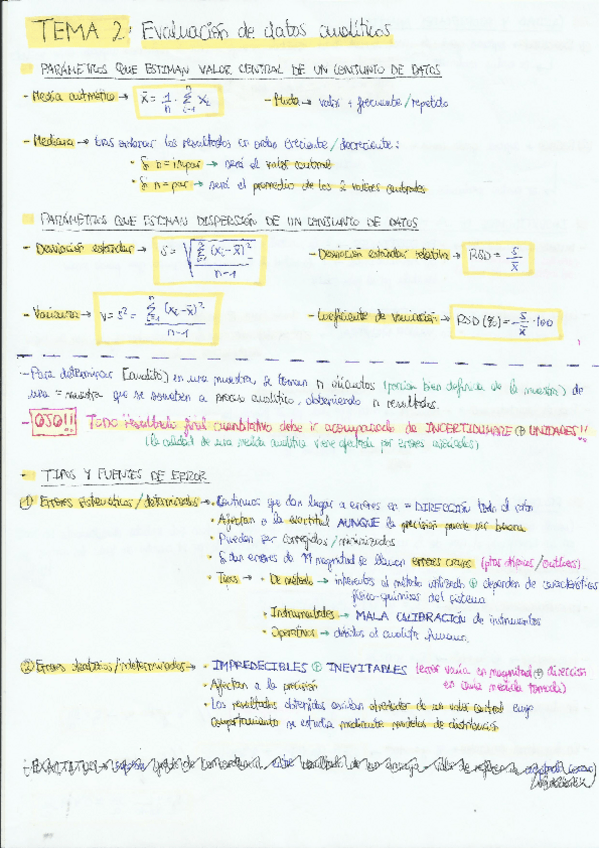 TEMA 2: Evaluación de datos analíticos
PARÁMETROS QUE ESTIMAN VALOR CENTRAL DE UN CONJUNTO DE DATOS
- Media aritmética → x̄ = 1/n · Σ xᵢ (i=1, n) - Moda → valor + frecuente/repetido
- Mediana → tras ordenar los resultados en orden creciente/decreciente:
• Si n = impar → será el valor central
• Si n = par → será el promedio de los 2 valores centrales
PARÁMETROS QUE ESTIMAN DISPERSIÓN DE UN CONJUNTO DE DATOS
- Desviación estándar → s = √(Σ (xᵢ - x̄)² / n-1) - Desviación estándar relativa → RSD = s/x̄
- Varianza → v = s² = Σ (xᵢ - x̄)² / n-1 - Coeficiente de variación → RSD (%) = s/x̄ · 100
- Para determinar [analito] en una muestra se toman n alícuotas (porción bien definida de la muestra) de
una = muestra que se someten a proceso analítico, obteniendo n resultados.
- OJO!! TODO resultado final cuantitativo debe ir acompañado de INCERTIDUMBRE ⊕ UNIDADES!!
(la calidad de una medida analítica viene afectada por errores asociados)
- TIPOS Y FUENTES DE ERROR
① Errores sistemáticos/determinados → • Continuos que dan lugar a errores en = DIRECCIÓN todo el
• Afectan a la exactitud AUNQUE la precisión puede ser buena
• Pueden ser corregidos/minimizados
• Si dan errores de ↑ magnitud se llaman errores (ptos /outliers)
• Tipos → • De método → inherentes al método utilizado ⊕ dependen de características
físico-químicas del sistema
• Instrumentales → MALA CALIBRACIÓN de instrumentos
• Operativos → debidos al analista humano.
② Errores aleatorios/indeterminados → • IMPREDECIBLES ⊕ INEVITABLES (error varía en magnitud ⊕ dirección
en cada medida tomada)
• Afectan a la precisión
• Los resultados obtenidos oscilan alrededor de un valor central cuyo
comportamiento se estudia mediante modelos de distribución
- EXACTITUD →